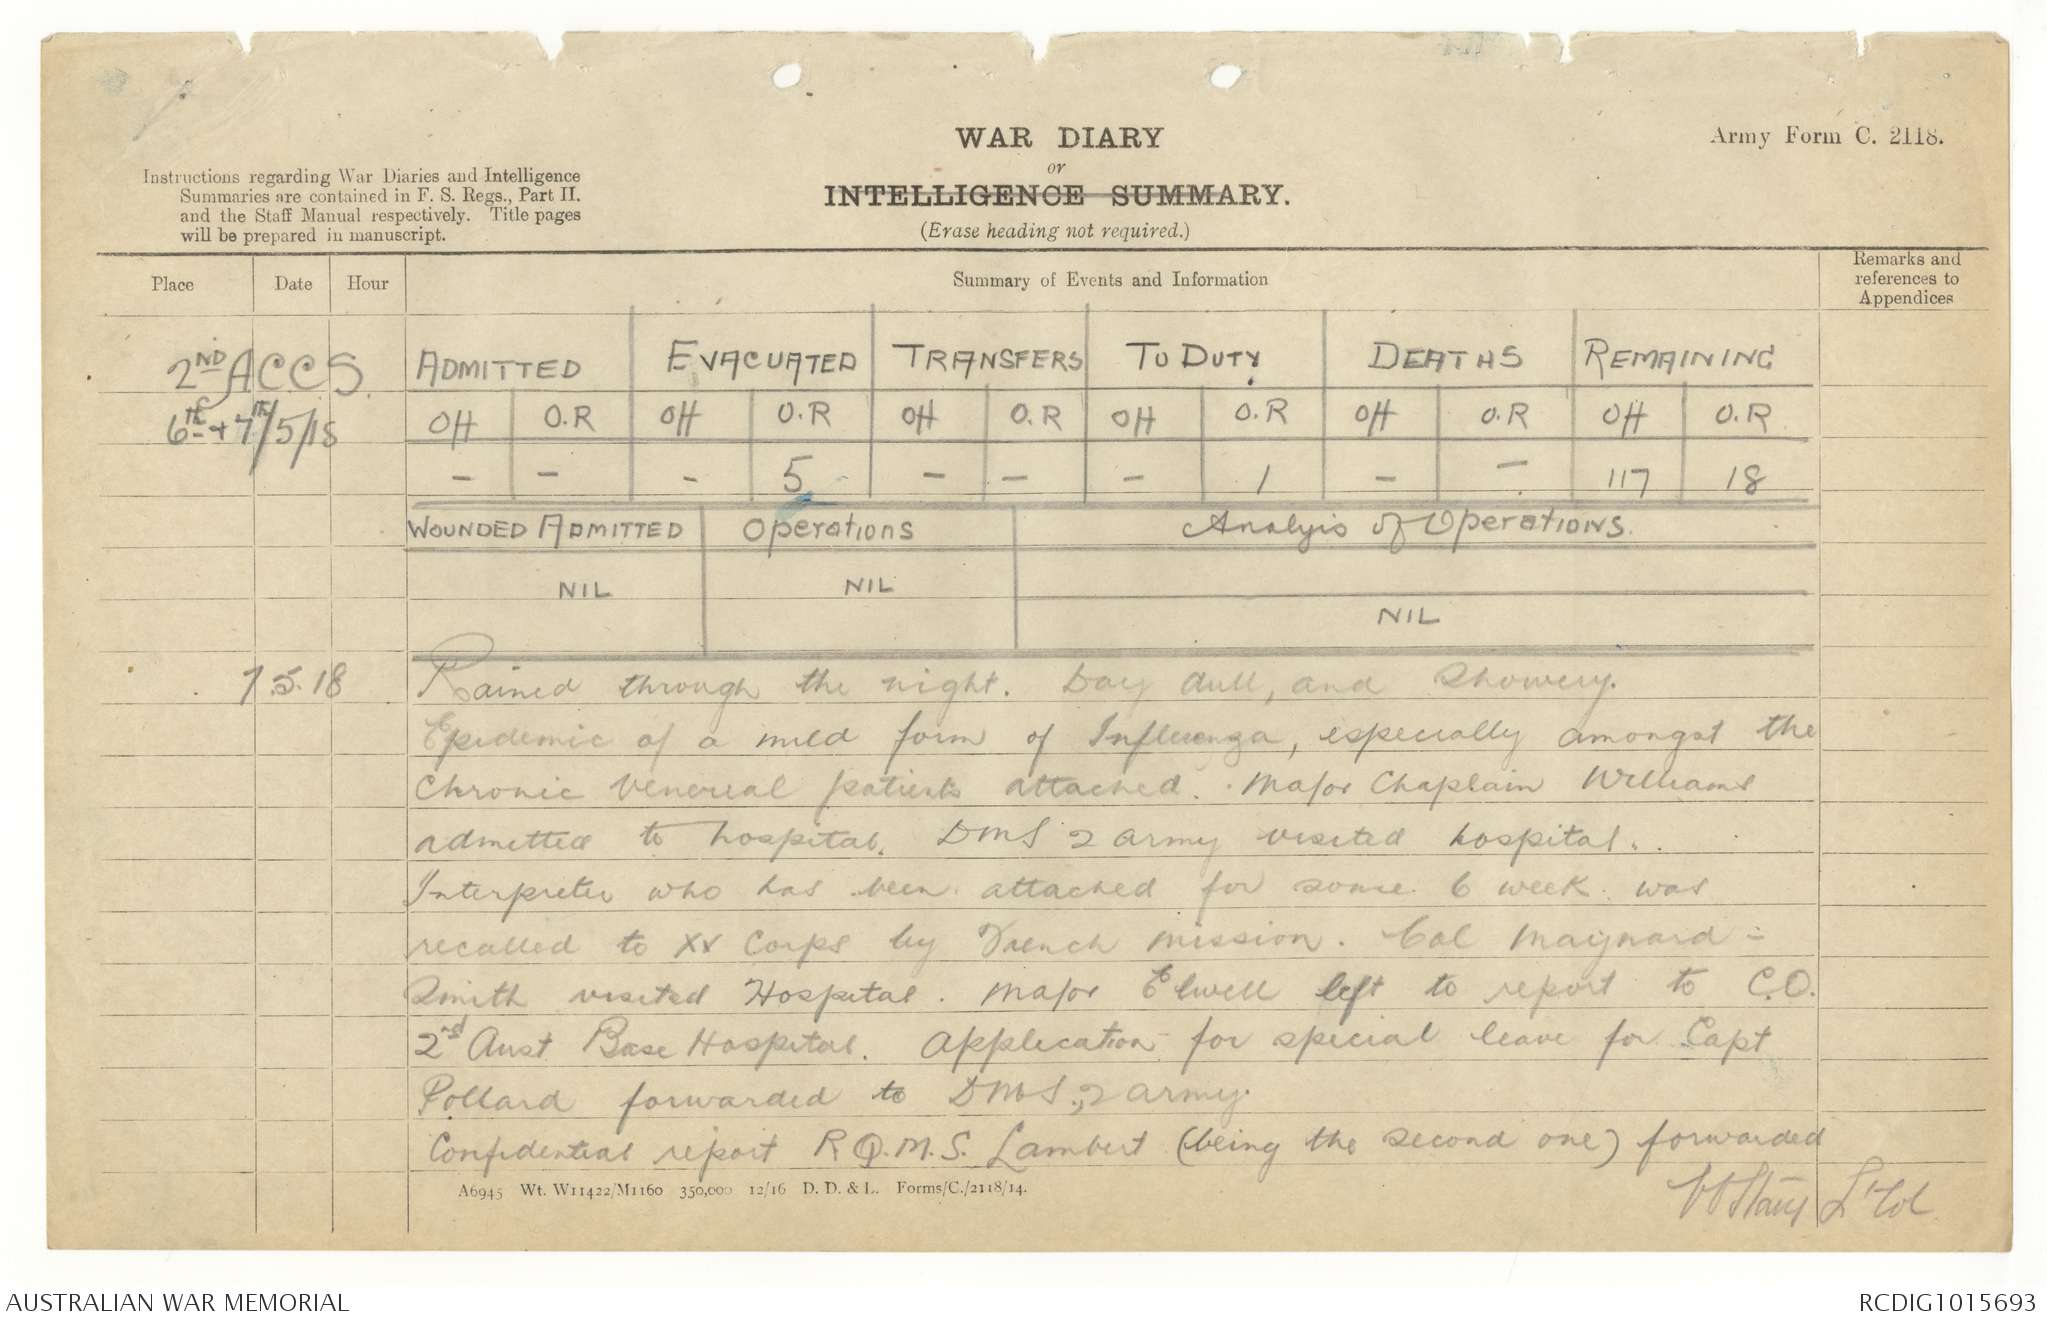 WAR DIARY
or
INTELLIGENCE SUMMARY.
(Erase heading not required.)
Army Form C. 2118.
Instructions regarding War Diaries and Intelligence
Summaries are contained in F. S. Regs., Part II.
and the Staff Manual respectively. Title pages
will be prepared in manuscript.
Place Date Hour Summary of Events and Information Remarks and references to Appendices
2ND ACCS. ADMITTED EVACUATED TRANSFERS TO DUTY DEATHS REMAINING
6th + 7th/5/18 OH O.R OH O.R OH O.R OH O.R OH O.R OH O.R
– – – 5 – – – 1 – – 117 18
WOUNDED ADMITTED Operations Analyis of Operations.
NIL NIL
NIL
7.5.18 Rained through the night. Day dull, and showery.
Epidemic of a mild form of Influenza, especially amongst the
Chronic Venereal patients attached. Major Chaplain Williams
admitted to hospital. DMS 2 Army visited hospital.
Interpreter who has been attached for some 6 week was
recalled to XV Corps by French mission. Col Maynard -
Smith visited Hospital. Major Elwell left to report to C.O.
2nd Aust Base Hospital. Application for special leave for Capt
Pollard forwarded to DMS, 2 army.
Confidential report R.Q.M.S. Lambert (being the second one) forwarded
A6945 Wt. W11422/M1160 350,000 12/16 D. D. & L. Forms/C./2118/14.
Lt Col
AUSTRALIAN WAR MEMORIAL
RCDIG1015693